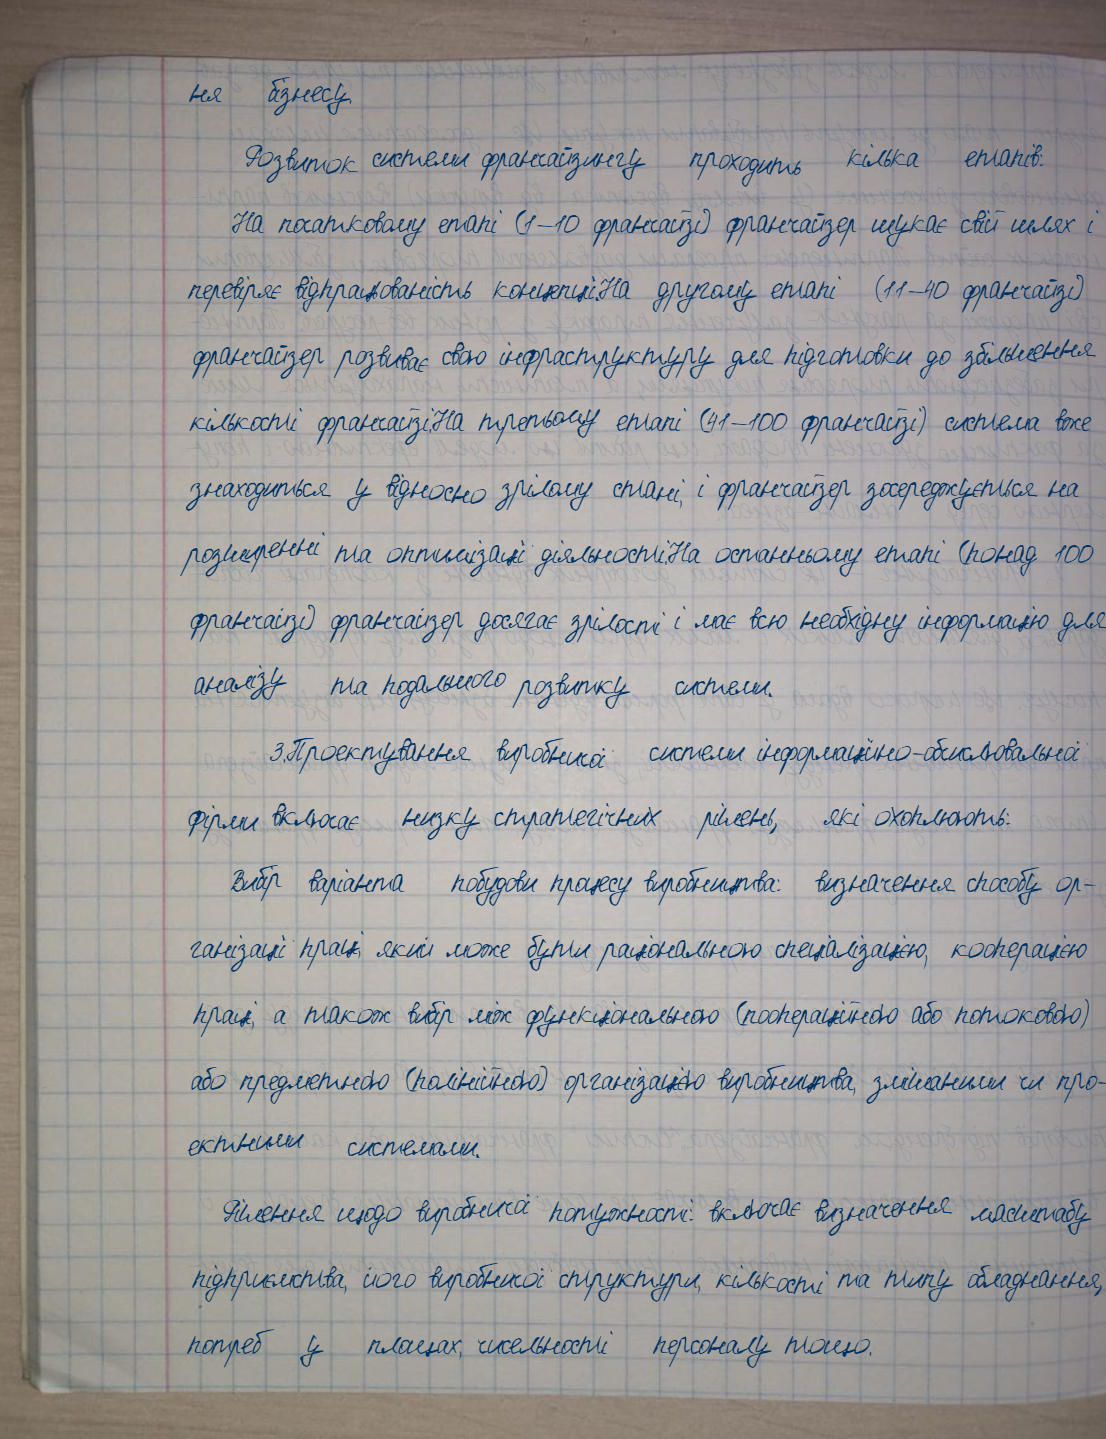 ня бізнесу.
Розвиток системи франчайзингу проходить кілька етапів:
На початковому етапі (1–10 франчайзі) франчайзер шукає свій шлях і
перевіряє відпрацьованість концепції.На другому етапі (11–40 франчайзі)
франчайзер розвиває свою інфраструктуру для підготовки до збільшення
кількості франчайзі.На третьому етапі (41–100 франчайзі) система вже
знаходиться у відносно зрілому стані, і франчайзер зосереджується на
розширенні та оптимізації діяльності.На останньому етапі (понад 100
франчайзі) франчайзер досягає зрілості і має всю необхідну інформацію для
аналізу та подальшого розвитку системи.
3.Проектування виробничої системи інформаційно-обчислювальної
фірми включає низку стратегічних рішень, які охоплюють:
Вибір варіанта побудови процесу виробництва: визначення способу ор-
ганізації праці, який може бути раціональною спеціалізацією, кооперацією
праці, а також вибір між функціональною (поопераційною або потоковою)
або предметною (полінійною) організацією виробництва, змішаними чи про-
ектними системами.
Рішення щодо виробничої потужності: включає визначення масштабу
підприємства, його виробничої структури, кількості та типу обладнання,
потреб у площах, чисельності персоналу тощо.